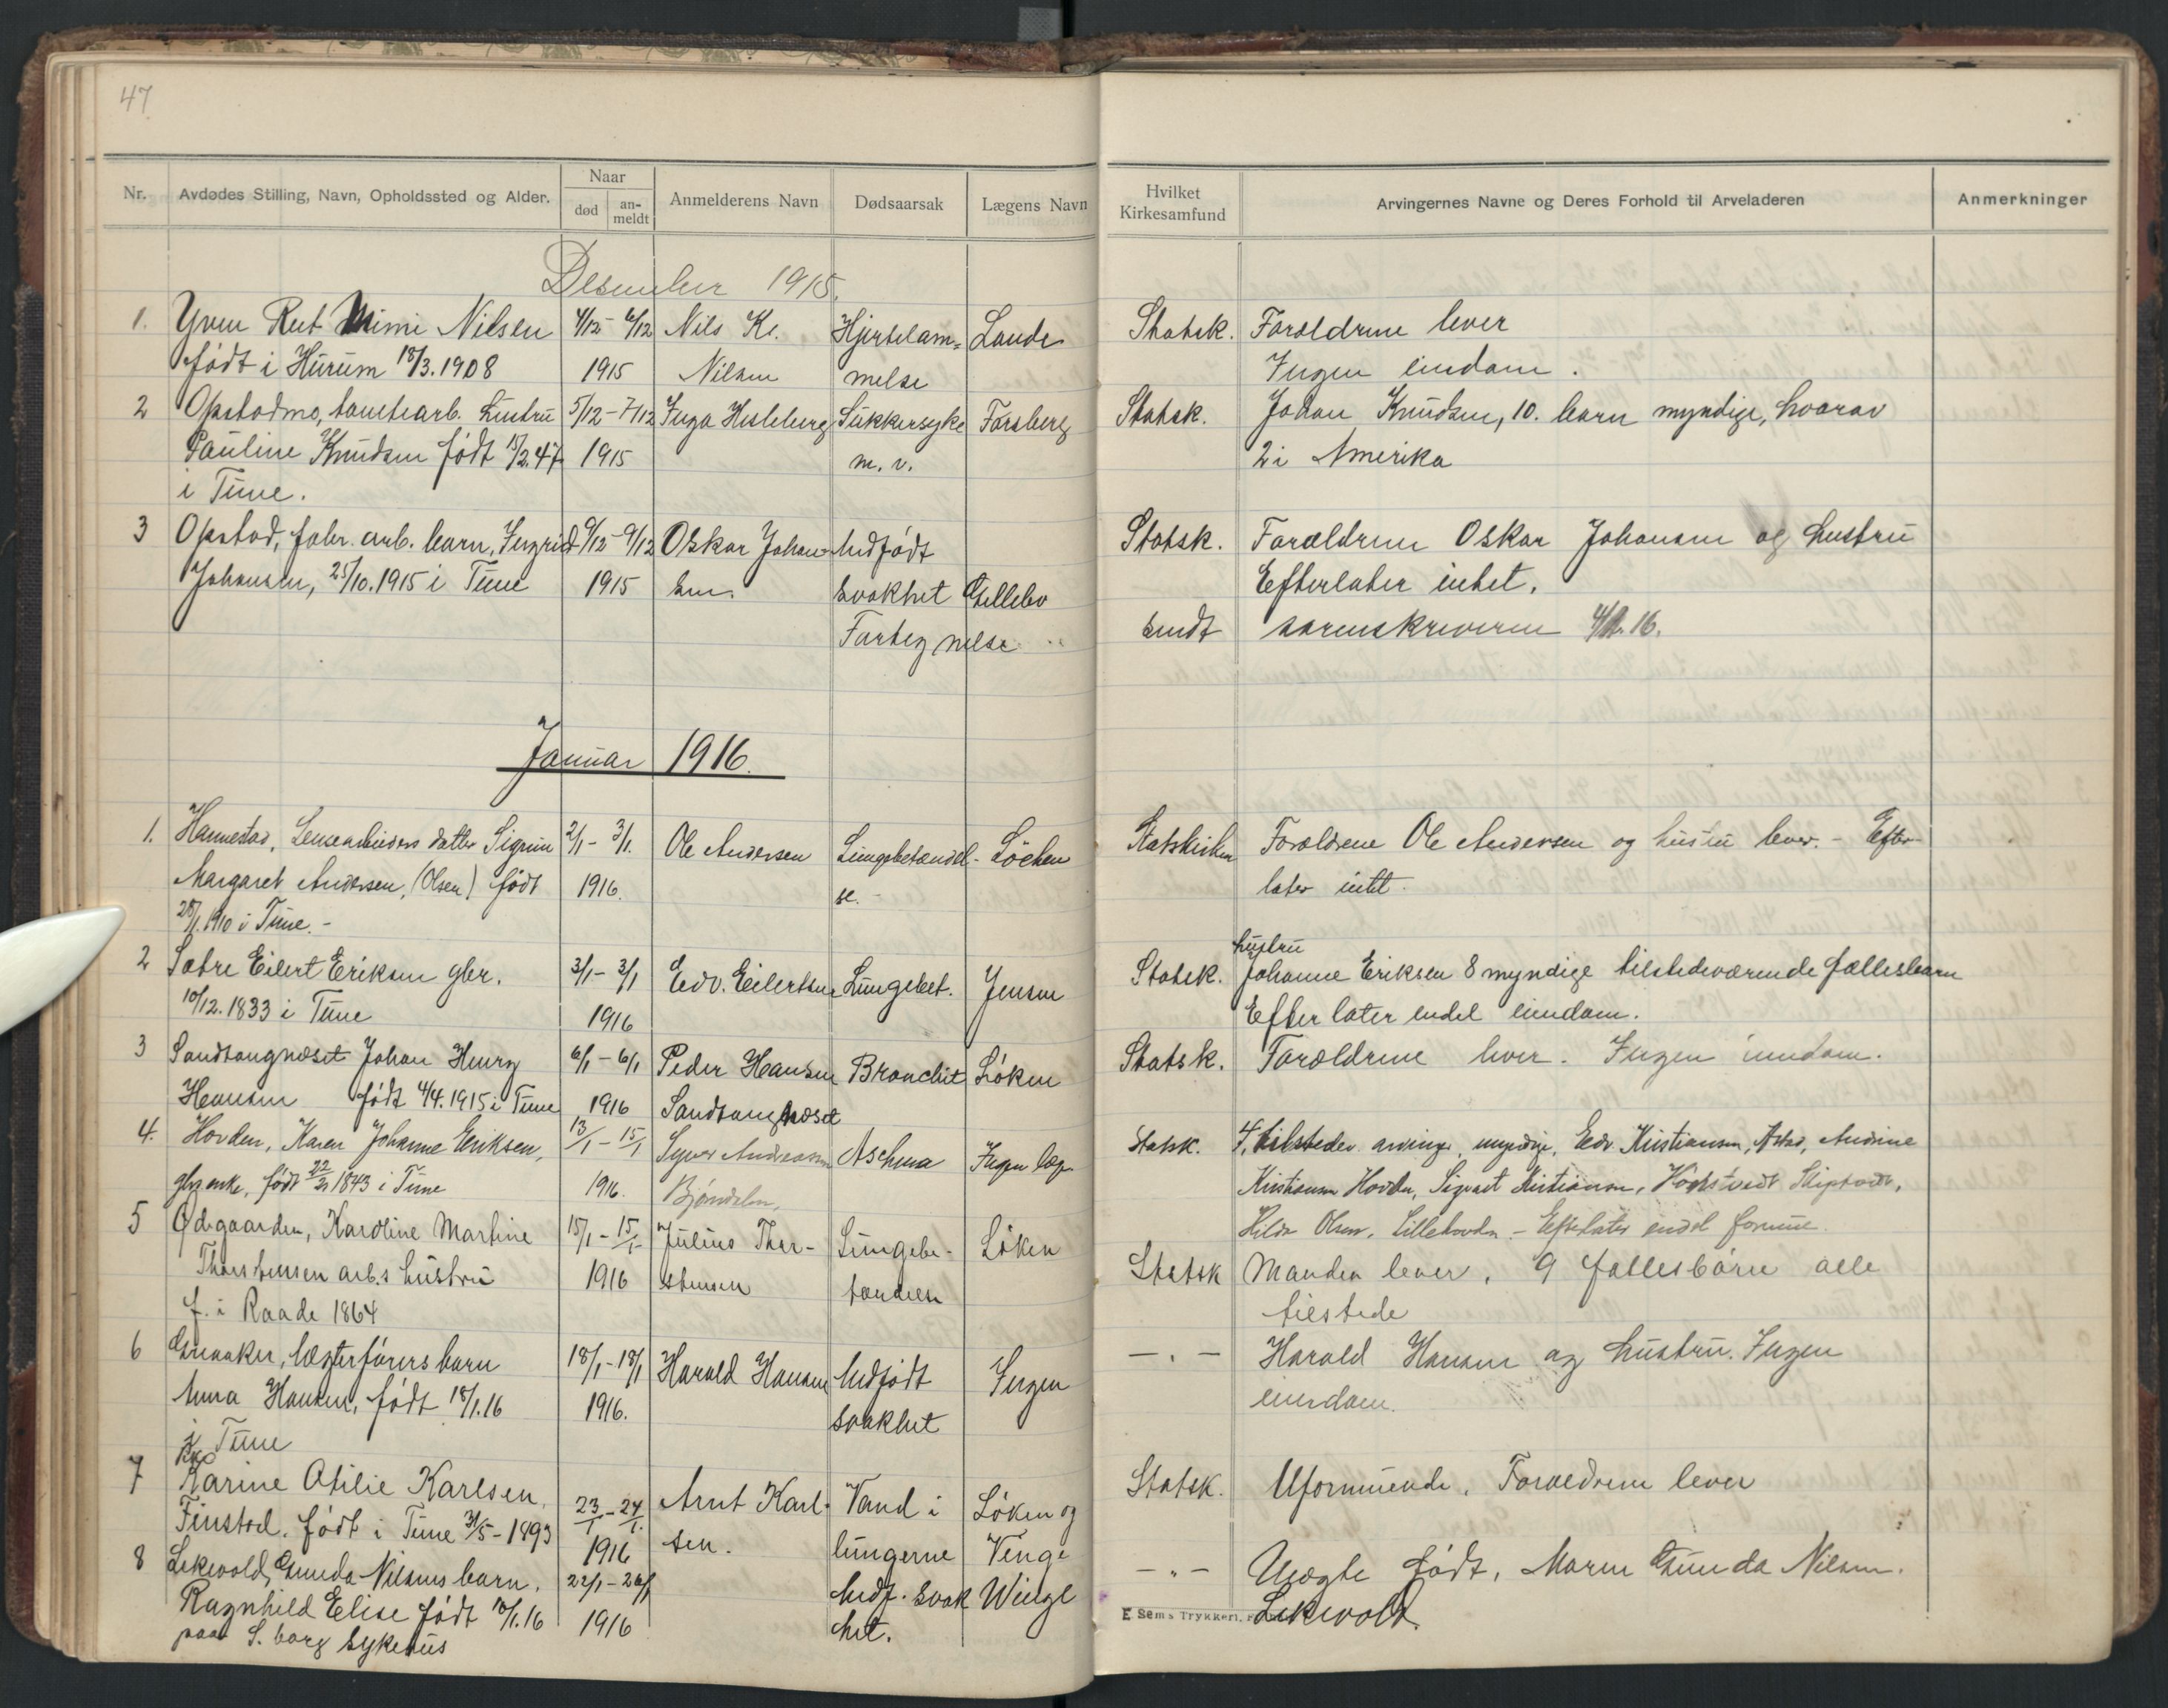 47
Nr. Avdødes Stilling, Navn, Opholdssted og Alder. Naar død an-meldt Anmelderens Navn Dødsaarsak Lægens Navn Hvilket Kirkesamfund Arvingernes Navne og Deres Forhold til Arveladeren Anmerkninger
Desember 1915.
1. Rut Mimi Nilsen 4/12 - 6/12 Nils Kr. Hjertelam= Lande Statsk. Forældrene lever
født i Hurum 18/3.1908 1915 Nilsen melse Ingen eiendom.
2 Opstadmo, tomtearb. hustru 5/12 - 7/12 Inga Hesleberg Sukkersyke Forsberg Statsk. Johan Knudsen, 10. barn myndige, hvorav
Pauline Knudsen født 15/2.47 1915 m. v. 2 i Amerika
i Tune.
3 Opstad, fabr. arb. barn, Ingrid 9/12 - 9/12 Oskar Johan- Medfødt Statsk. Forældrene Oskar Johansen og hustru
Johansen, 25/10.1915 i Tune 1915 sen. svakhet Gellebo Efterlater intet.
Fortegnelse sendt sorenskriveren 4/1.16.
Januar 1916.
1. Hannestad, Lensearbeiders datter Sigrun 2/1 - 3/1. Ole Andersen Lungebetændel- Löchen Statskirken Forældrene Ole Andersen og hustru lever. - Efter-
Margaret Andersen, (Olsen) født 1916. se. later intet.
28/1.1910 i Tune. -
hustru
2 Sætre Eilert Eriksen gbr. 3/1 - 3/1 Edv. Eilertsen Lungebet. Jensen Statsk. Johanne Eriksen 8 myndige tilstedeværende fællesbarn
10/12.1833 i Tune 1916 Efterlater endel eiendom.
3 Sandtangnæset Johan Henry 6/1 - 6/1 Peder Hansen Bronchit Løken Statsk. Forældrene lever. Ingen eiendom.
Hansen født 4/4.1915 i Tune 1916 Sandtangnæset
4. Hovden, Karen Johanne Eriksen, 13/1 - 15/1 Syver Andreassen Aschma Ingen læge Statsk. 4, tilstedev. arvinger, myndige, Edv. Kristiansen, Andrine
gbr.enke, født 1843 i Tune 1916. Bjørndalen, Kristiansen Hovden, Sigvart Kristiansen, Skiptvedt,
Hilda Olsen, Lillehovden. - Efterlater endel formue.
5 Ødegaarden, Karoline Martine 15/1 - 15/1 Julius Thor- Lungebe- Løken Statsk Manden lever, 9 fællesbørn alle
Thorstensen arb.s hustru 1916 stensen tændelse tilstede
f. i Raade 1864
6 Greaaker, lægterførers barn 18/1 - 18/1 Harald Hansen Medfødt Ingen - " - Harald Hansen og hustru. Ingen
Anna Hansen, født 18/1.16 1916. svakhet eiendom.
i Tune
7 Karine Otilie Karlsen, 23/1 - 24/1. Arnt Karl- Vand i Løken og Statsk. Uformuende. Forældrene lever
Finstad. født i Tune 31/5-1893 1916 sen. lungerne Venge
8 Lekevold, Gunda Nilsens barn, 22/1 - 26/1 Medf. svak Winge - " - Uægte født, Moren Gunda Nilsen.
Ragnhild Elise født 10/1.16 1916 het. Lekevold.
paa S.borg sykehus
E Sems Trykkeri,